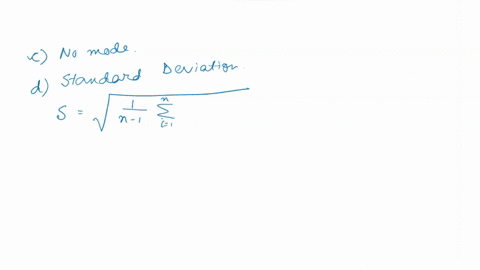 c) No mode.
d) Standard Deviation.
S = √(1/(n-1) Σ_{i=1}^{n})